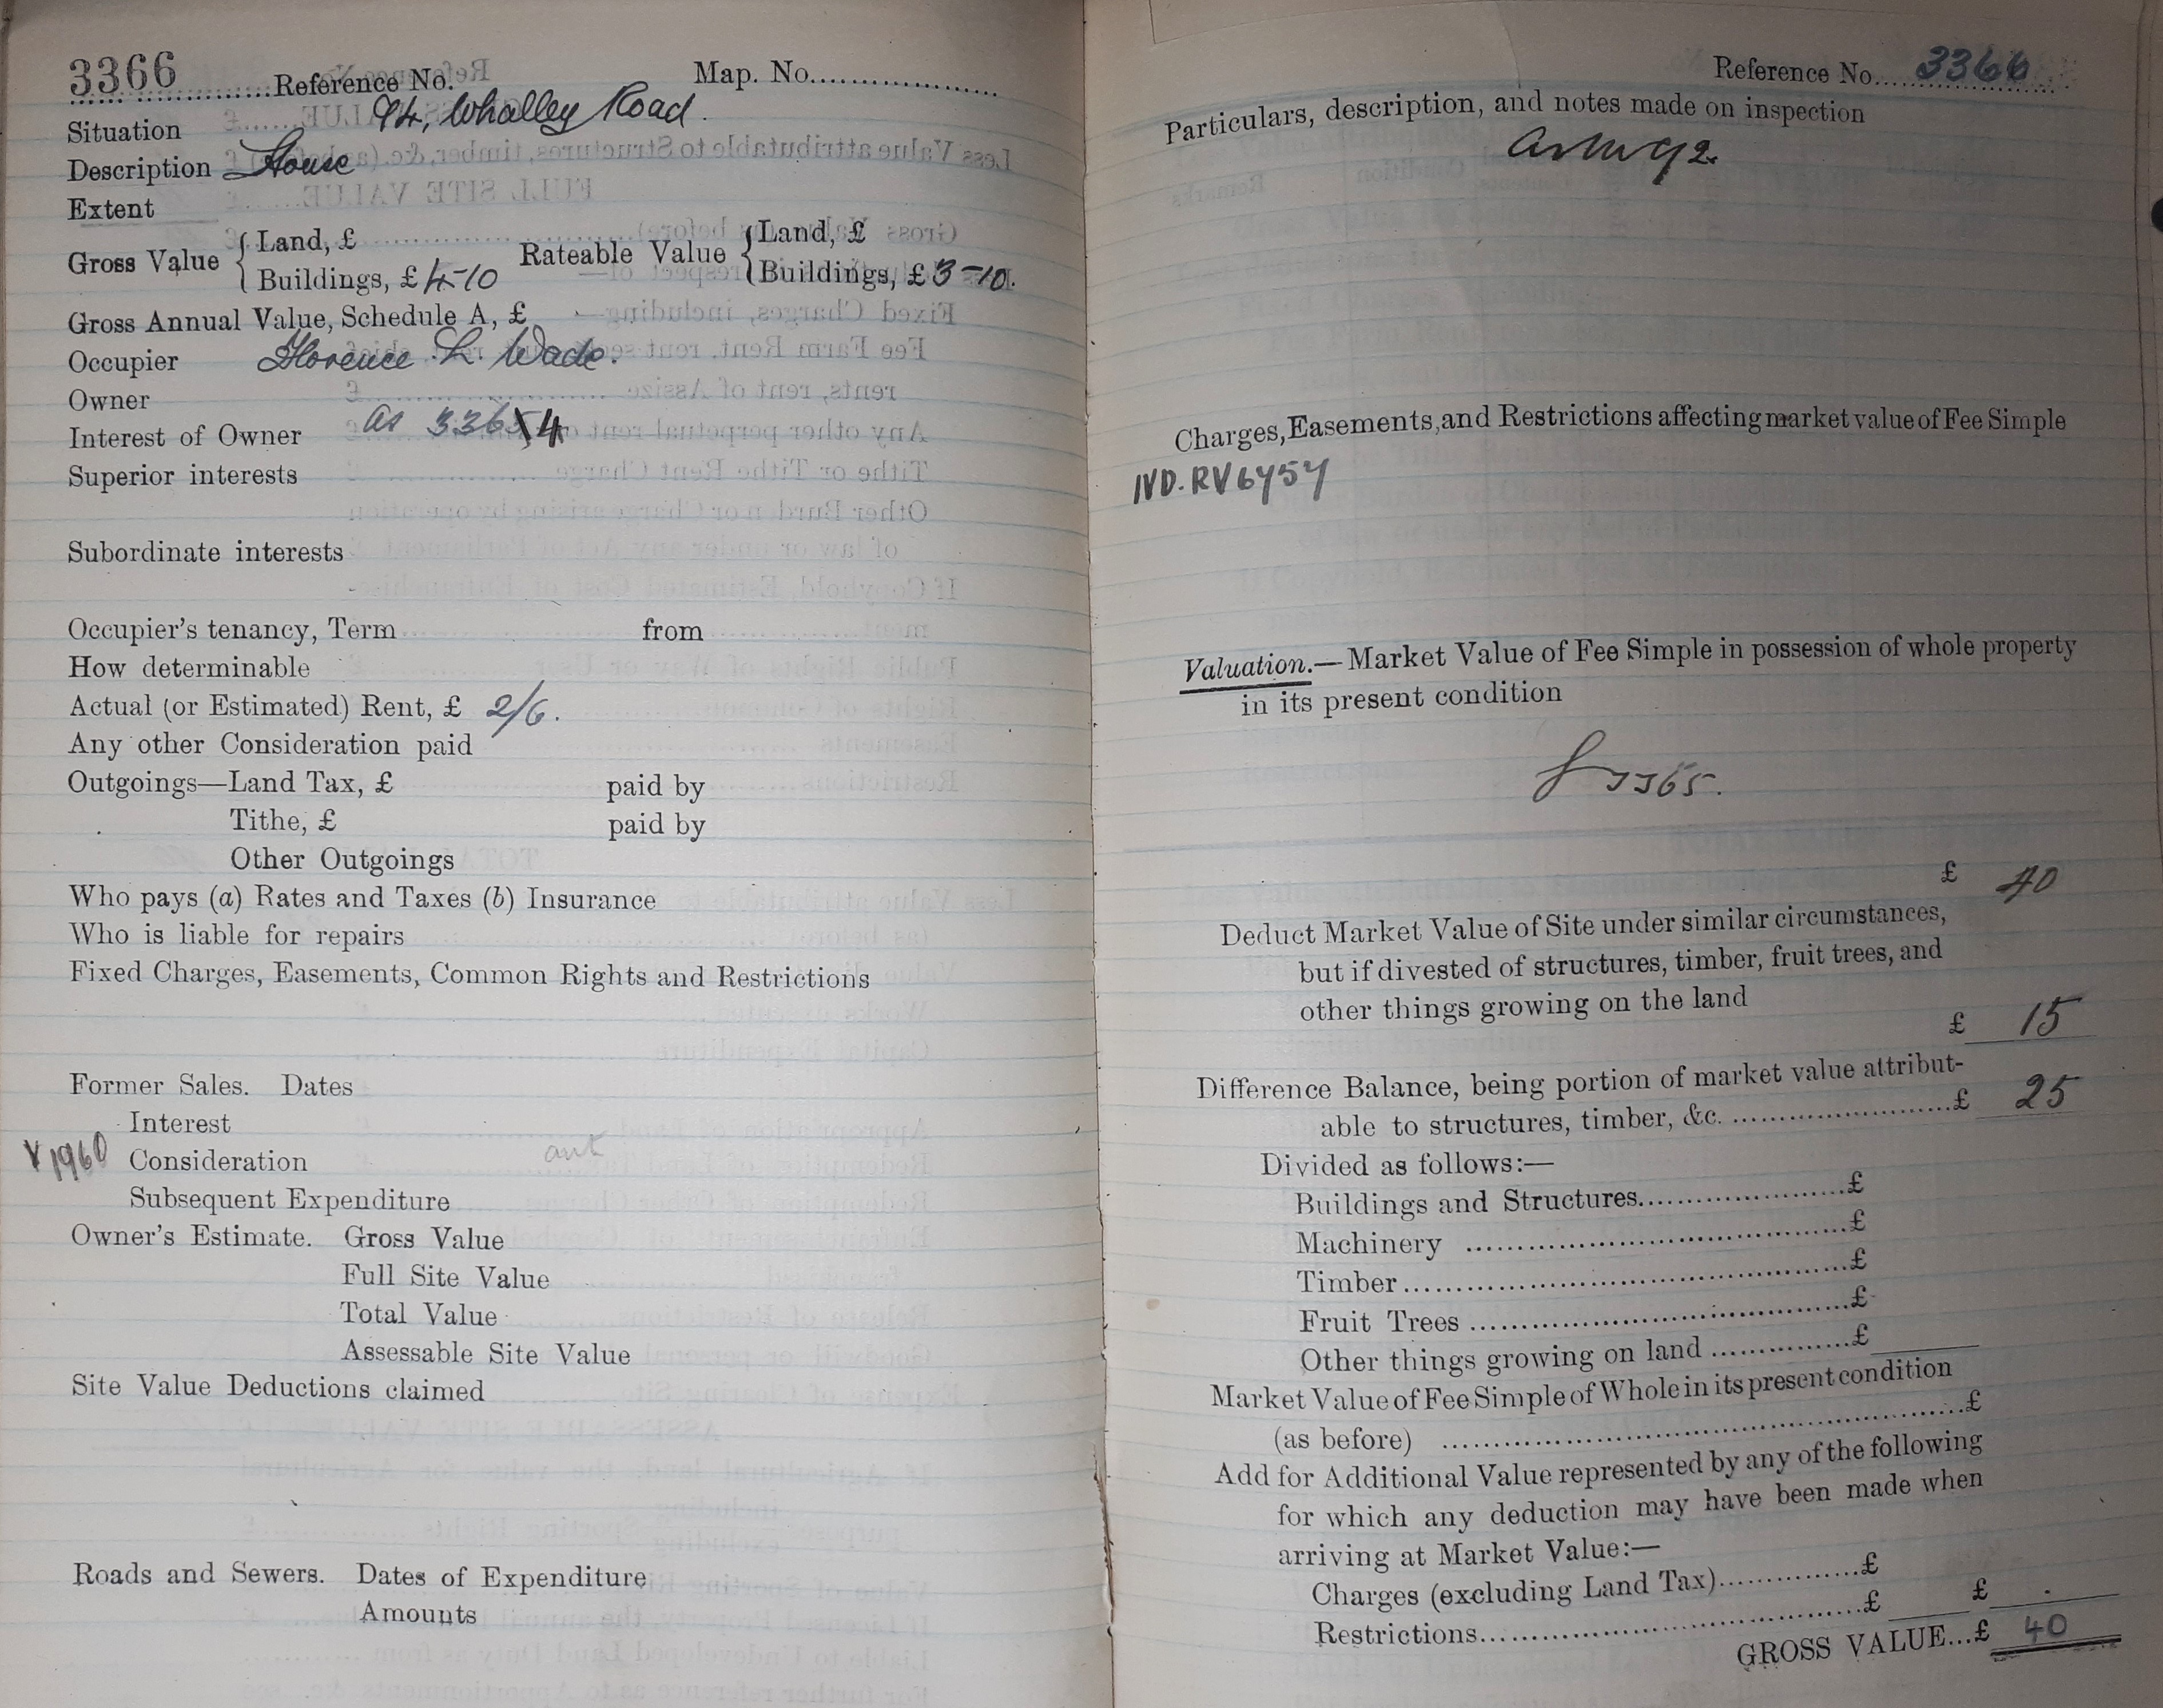 3366 Reference No. Map. No.
Situation 94, Whalley Road.
Description House
Extent
Gross Value { Land, £
Buildings, £ 4-10
Rateable Value { Land, £
Buildings, £ 3-10.
Gross Annual Value, Schedule A, £
Occupier Florence L. Wade.
Owner
Interest of Owner as 3364
Superior interests
Subordinate interests
Occupier's tenancy, Term from
How determinable
Actual (or Estimated) Rent, £ 2/6.
Any other Consideration paid
Outgoings—Land Tax, £ paid by
Tithe, £ paid by
Other Outgoings
Who pays (a) Rates and Taxes (b) Insurance
Who is liable for repairs
Fixed Charges, Easements, Common Rights and Restrictions
Former Sales. Dates
Interest
V1960 Consideration
Subsequent Expenditure
Owner's Estimate. Gross Value
Full Site Value
Total Value
Assessable Site Value
Site Value Deductions claimed
Roads and Sewers. Dates of Expenditure
Amounts
Reference No. 3366
Particulars, description, and notes made on inspection
Charges, Easements, and Restrictions affecting market value of Fee Simple
IVD. RV 6457
Valuation.—Market Value of Fee Simple in possession of whole property
in its present condition
3365.
£ 40
Deduct Market Value of Site under similar circumstances,
but if divested of structures, timber, fruit trees, and
other things growing on the land
£ 15
Difference Balance, being portion of market value attribut-
able to structures, timber, &c. £ 25
Divided as follows:—
Buildings and Structures £
Machinery £
Timber £
Fruit Trees £
Other things growing on land £
Market Value of Fee Simple of Whole in its present condition
(as before) £
Add for Additional Value represented by any of the following
for which any deduction may have been made when
arriving at Market Value:—
Charges (excluding Land Tax) £
Restrictions £ £
GROSS VALUE...£ 40